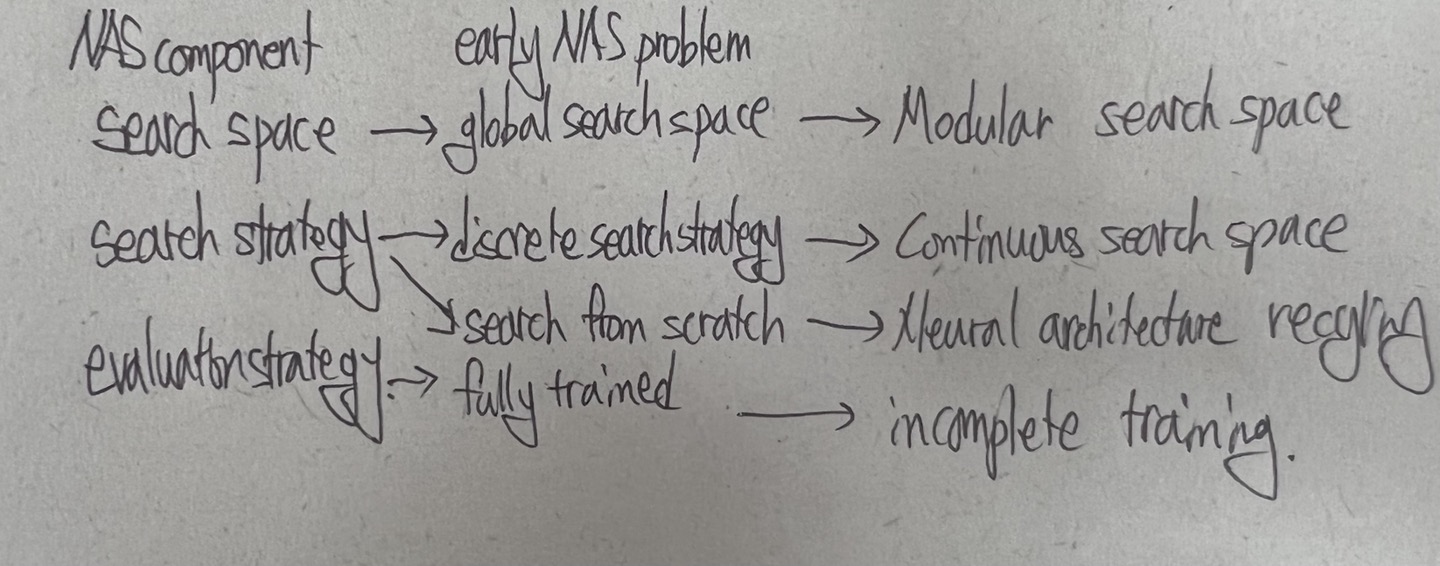 NAS component early NAS problem
search space → global search space → Modular search space
search strategy → discrete search strategy → Continuous search space
→ search from scratch → Neural architecture recycling
evaluation strategy. → fully trained → incomplete training.